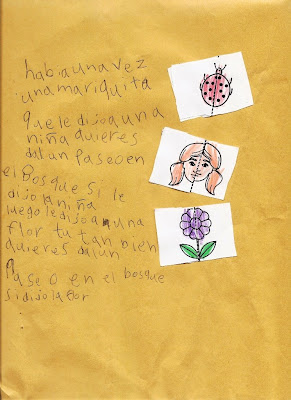 habia una vez
una mariquita
que le dijo a una
niña quieres
dar un Paseo en
el Bosque Si le
dijo la niña
luego le dijo a una
flor tu tan bien
quieres da un
Pase o en el bosque
si dijo la flor